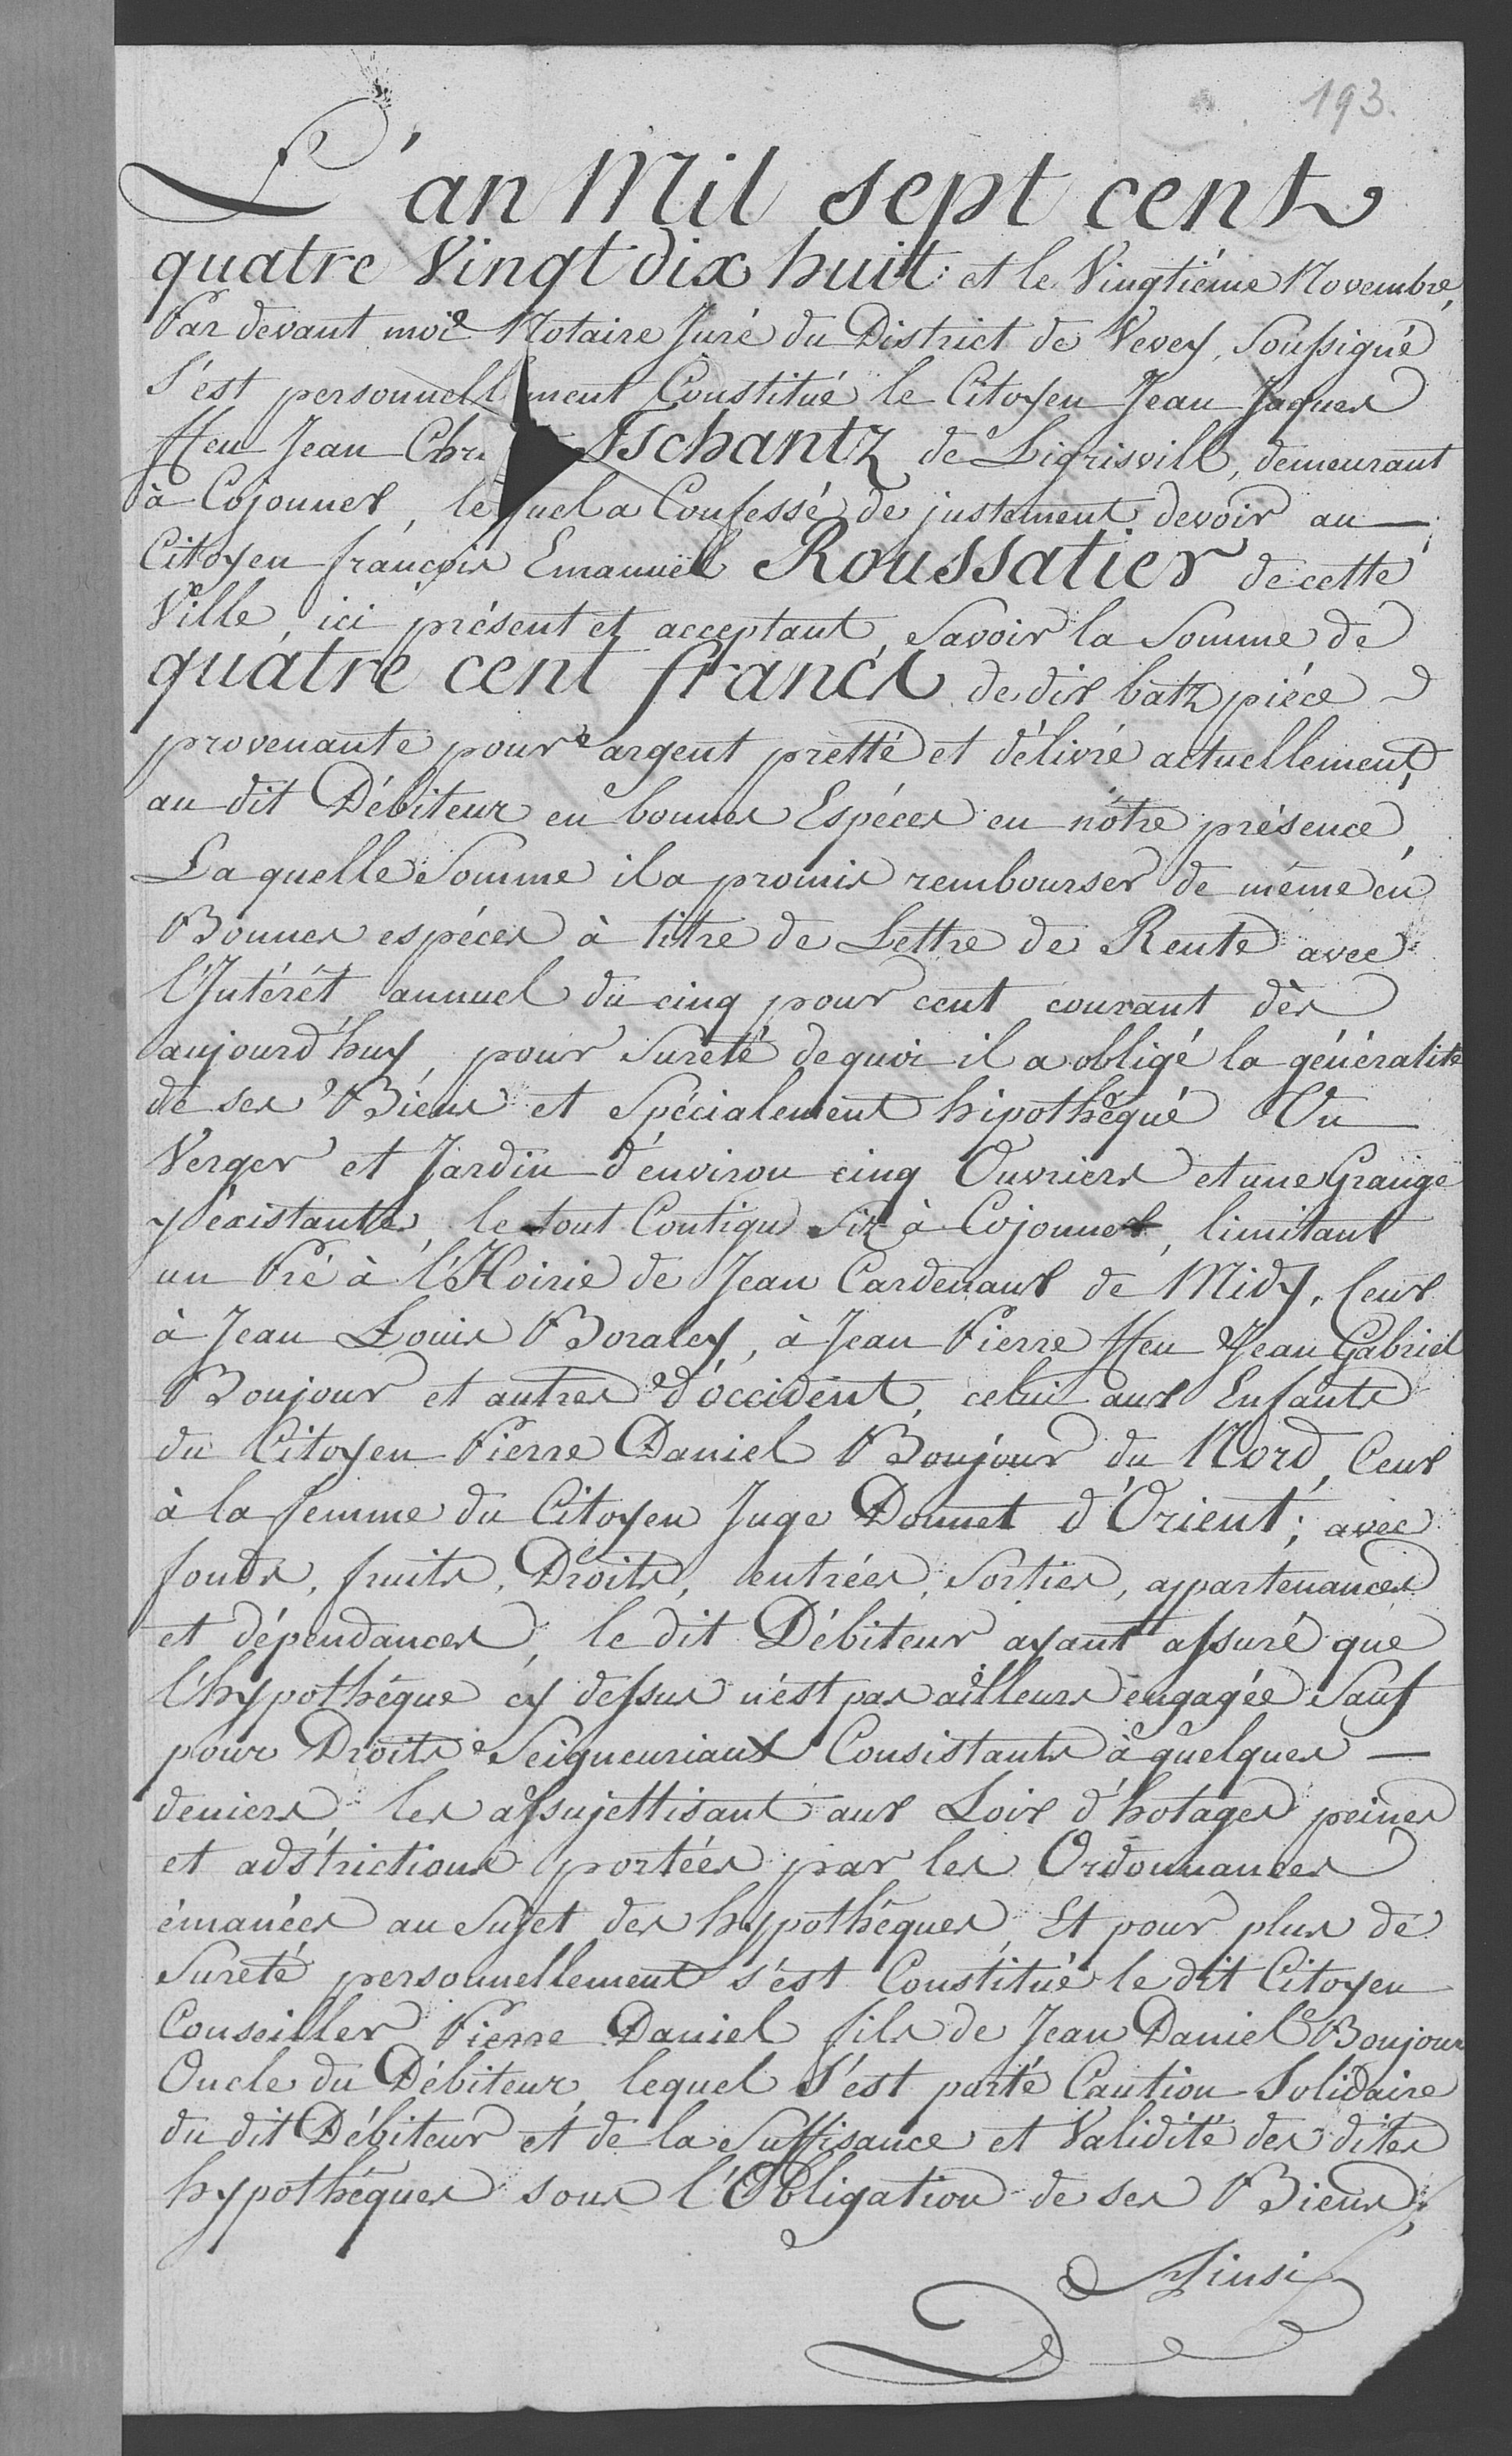 193.
L'an Mil sept cent
quatre Vingt dix huit: et le Vingtiéme Novembre,
Par devant moi Notaire Juré du District de Vevey, Soussigné
S'est personnellement Constitué le Citoyen Jean Jaques
ffeu Jean Chr. Tschantz de Sigrisvill, demeurant
à Cojonnex, lequel a Confessé de justement devoir au
Citoyen françois Emanuël Roussatier de cette
Ville, ici présent et acceptant, Savoir la Somme de
quatre cent francs de dix batz piéce
provenante pour argent pretté et délivré actuellement,
au dit Débiteur en bonnes Espéces en nôtre présence,
La quelle Somme il a promis rembourser de méme en
Bonnes espéces à titre de Lettre de Rente avec
l'Intérét annuel du cinq pour cent courant dès
aujourd'huy, pour Sureté dequoi il a obligé la généralité
de ses Biens et Spécialement hipothéqué Un
Verger et Jardin d'environ cinq Ouvriers et une Grange
y éxistante, le tout Contigu Siz à Cojonnex, limitant
un Pré à l'Hoirie de Jean Cardenaux de Midy, Ceux
à Jean Louis Boraley, à Jean Pierre ffeu Jean Gabriel
Boujour et autres d'occident, celui aux Enfants
du Citoyen Pierre Daniel Boujour du Nord, Ceux
à la femme du Citoyen Juge Donnet d'Orient; avec
fonds, fruits, Droits, entrées, Sorties, appartenances
et dépendances, le dit Débiteur ayant assuré que
l'hypothéque cy dessus n'est pas ailleurs engagée Sauf
pour Droits Seigneuriaux Consistants à quelques
deniers, les assujettisant aux Loix d'hotages peines
et adstrictions portées par les Ordonnances
émanées au Sujet des hypothéques, Et pour plus de
Sureté personnellement s'est Constitué le dit Citoyen
Conseiller Pierre Daniel fils de Jean Daniel Boujour
Oncle du Débiteur, lequel S'est porté Caution Solidaire
du dit Débiteur et de la Suffisance et Validité des dites
hypothéques sous l'Obligation de ses Biens,
Ainsi